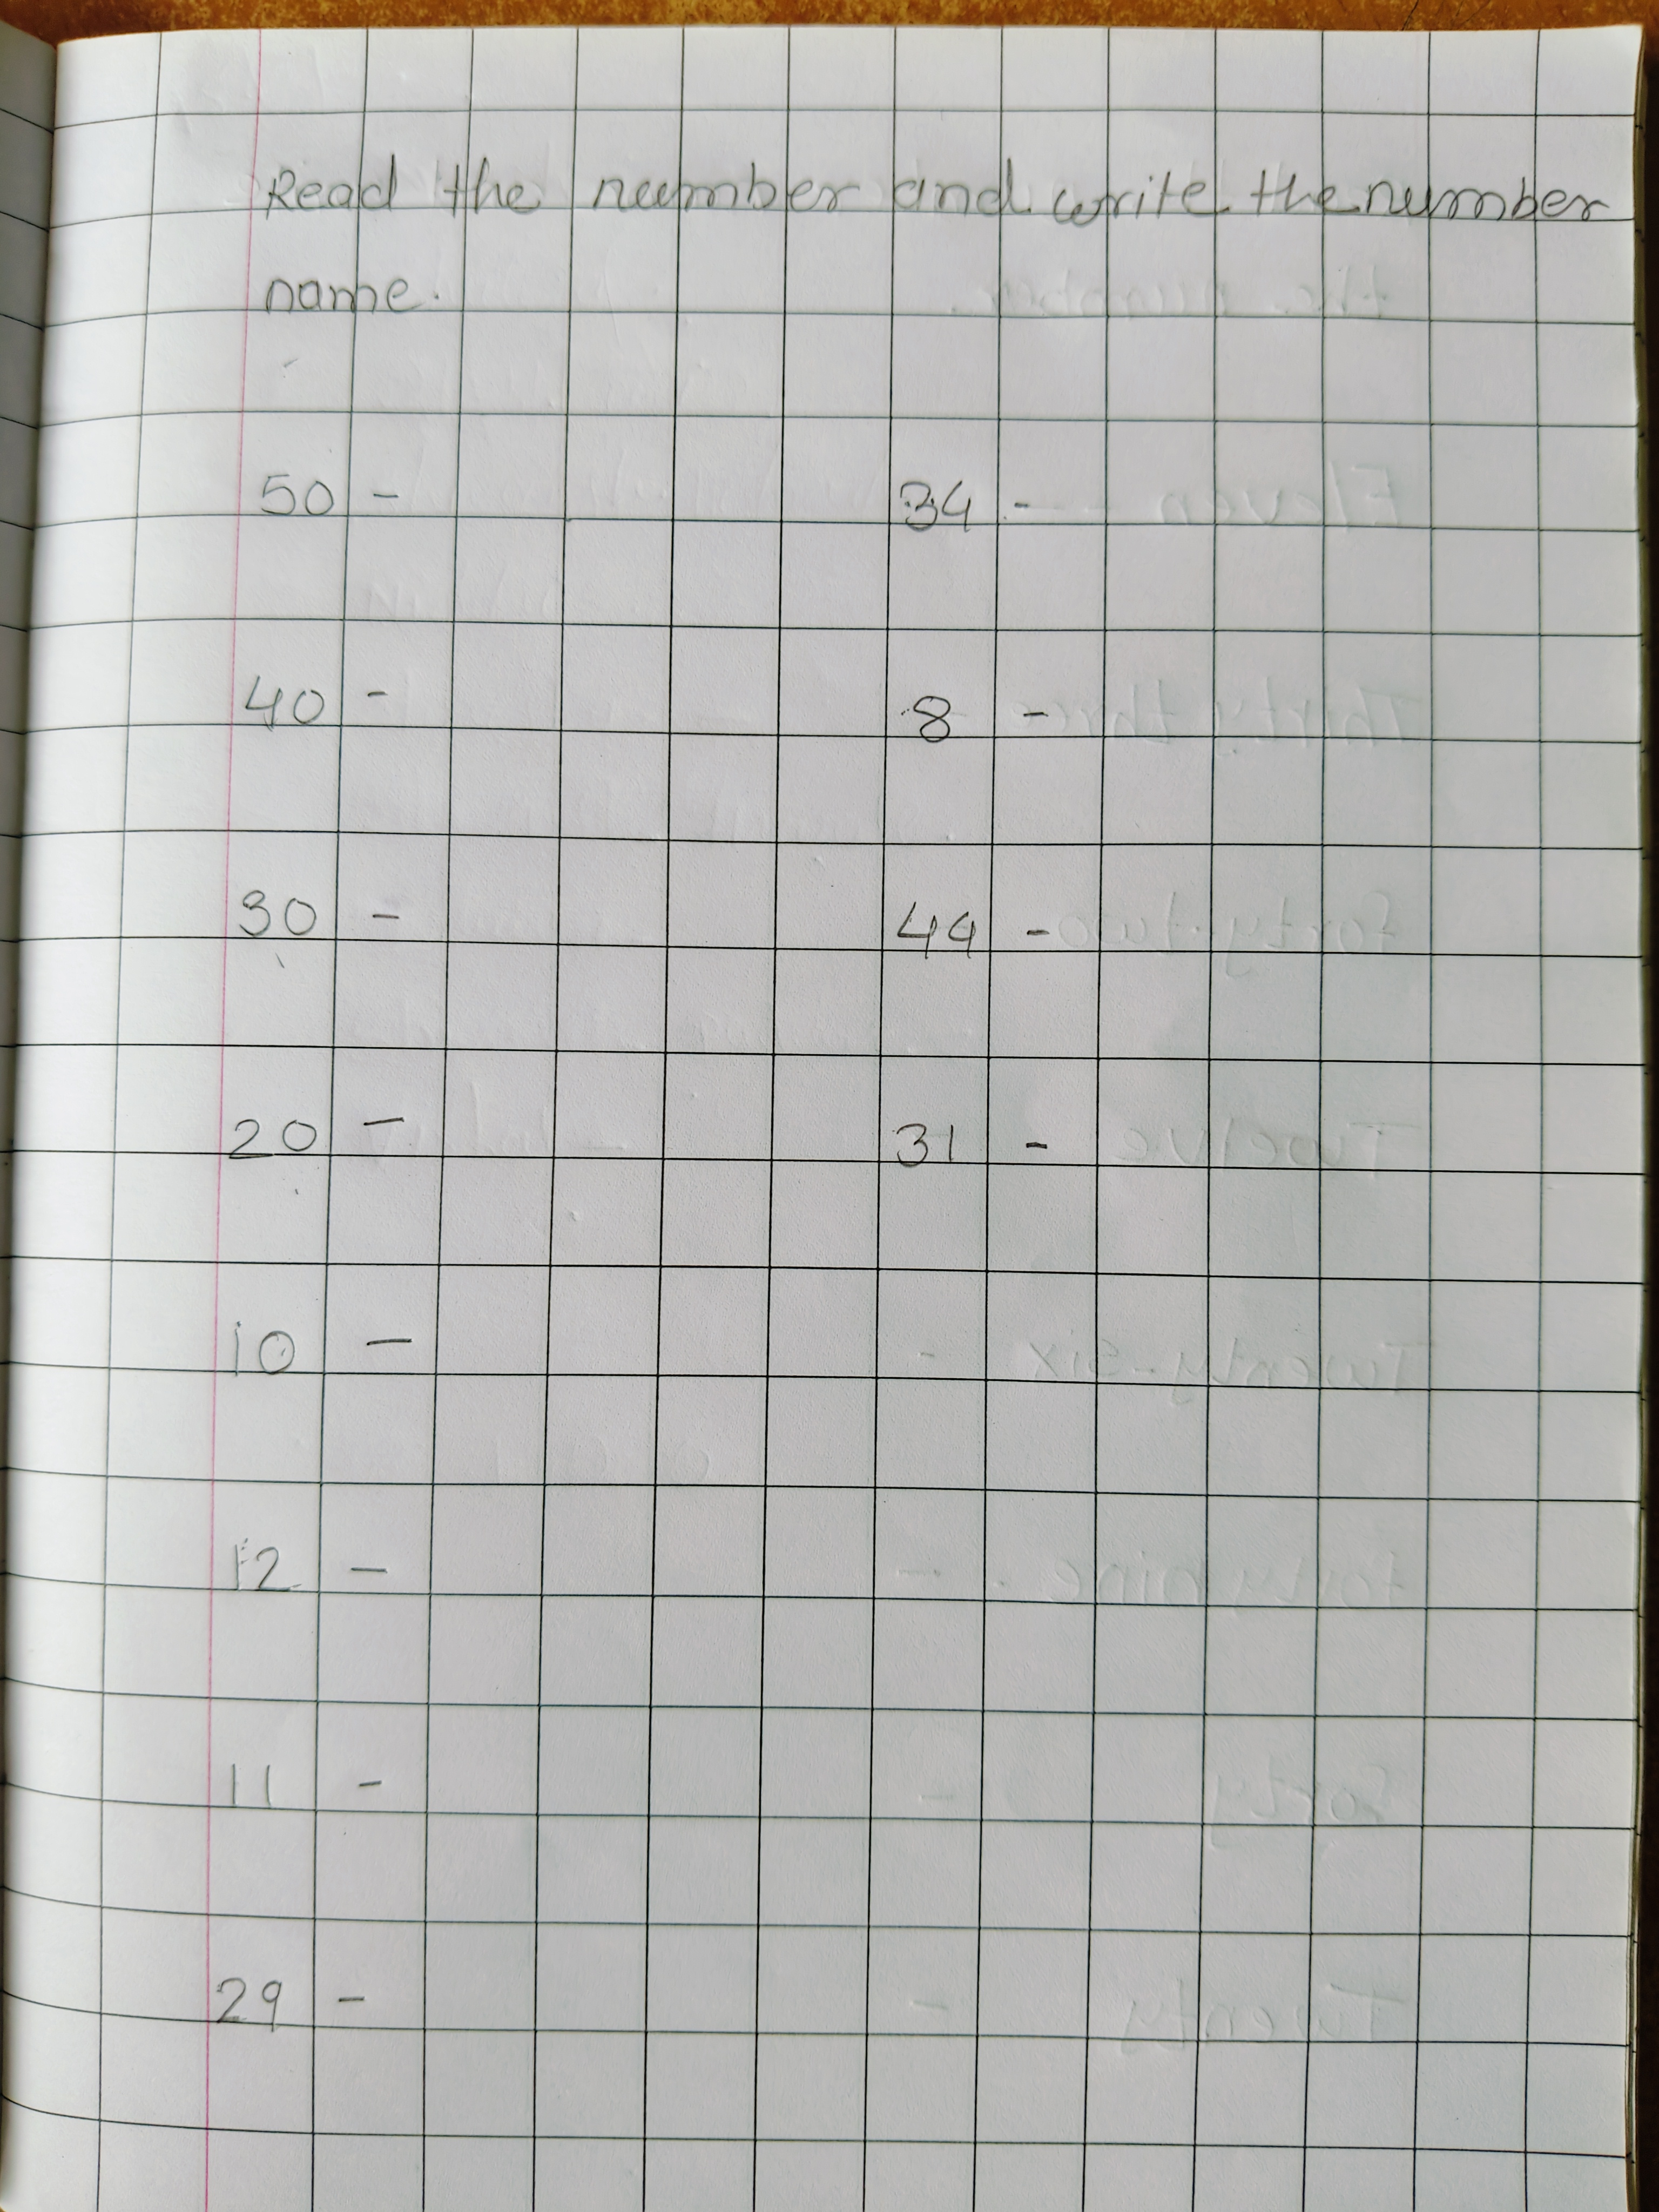 Read the number and write the number
name.
50 - 34 -
40 - 8 -
30 - 44 -
20 - 31 -
10 -
12 -
11 -
29 -